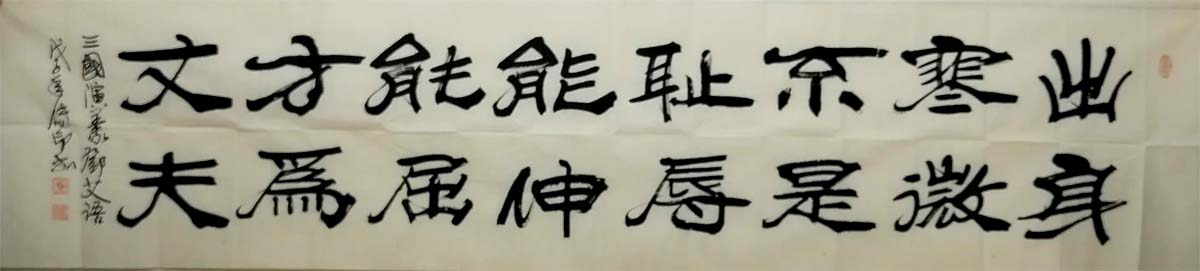 出身
寒微
不是
耻辱
能伸
能屈
方為
丈夫
三國演義鄧艾語
戊子年